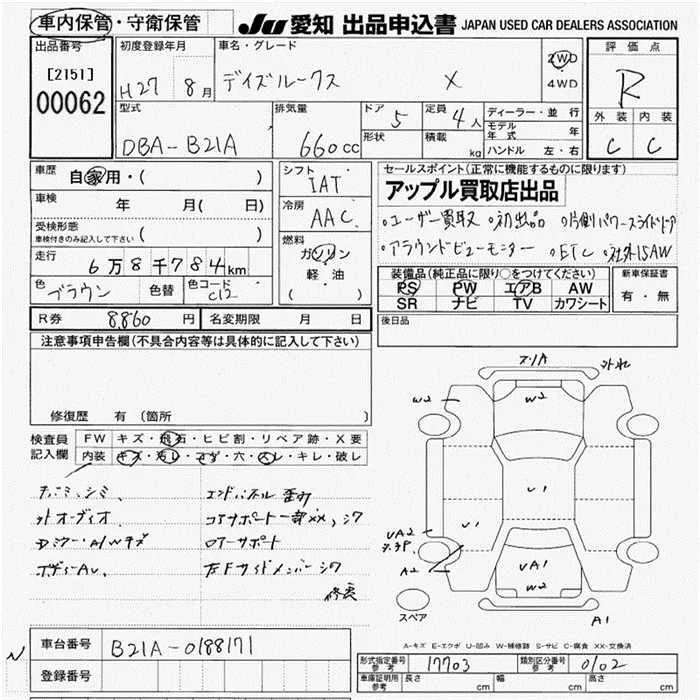 車内保管・守衛保管 JU 愛知 出品申込書 JAPAN USED CAR DEALERS ASSOCIATION
出品番号 初度登録年月 車名・グレード 評価点
[2151] H27 8月 デイズルークス X 2WD 4WD R
00062
型式 排気量 ドア 5 定員 4人 ディーラー・並行 外装 内装
DBA-B21A 660cc 形状 積載 kg モデル年式 年 C C
ハンドル 左・右
車歴 自家用・( ) シフト IAT セールスポイント(正常に機能するものに限ります)
車検 年 月( 日) 冷房 AAC アップル買取店出品
受検形態 車検付きのみ記入して下さい ( ) 。ユーザー買取 。初出品 。片側パワースライドドア
走行 6万8千784km 燃料 ガソリン 軽油 ( ) 。アラウンドビューモニター 。ETC 。社外15AW
色 ブラウン 色替 色コード C12 装備品(純正品に限り○をつけてください) 新車保証書
PS PW エアB AW 有・無
SR ナビ TV カワシート
R券 8,860円 名変期限 月 日 後日品
注意事項申告欄(不具合内容等は具体的に記入して下さい)
修復歴 有(箇所 )
検査員記入欄 FW キズ・飛石・ヒビ割・リペア跡・X要
内装 キズ・汚レ・コゲ・穴・スレ・キレ・破レ
外レ
W2
W2
U1
U1
UA2
A2
UA1
W2
A1
スペア
エンドパネル歪み
コアサポート一部XX、シワ
ロアーサポート
ボディーAU、 左Fサイドメンバーシワ
修復
A-キズ E-エクボ U-凹み W-補修跡 S-サビ C-腐食 XX-交換済
車台番号 B21A-0188171
登録番号
形式指定番号 参考 17703 類別区分番号 参考 0102
車庫証明用 参考 長さ cm 幅 cm 高さ cm